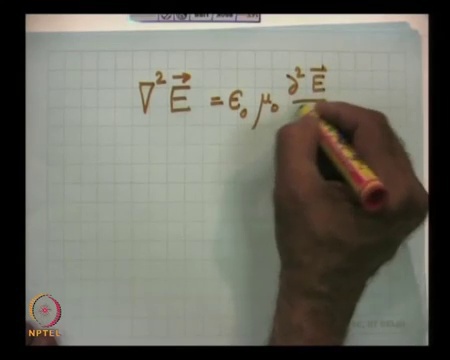 ∇² E⃗ = ε₀ μ₀ ∂² E⃗
NPTEL